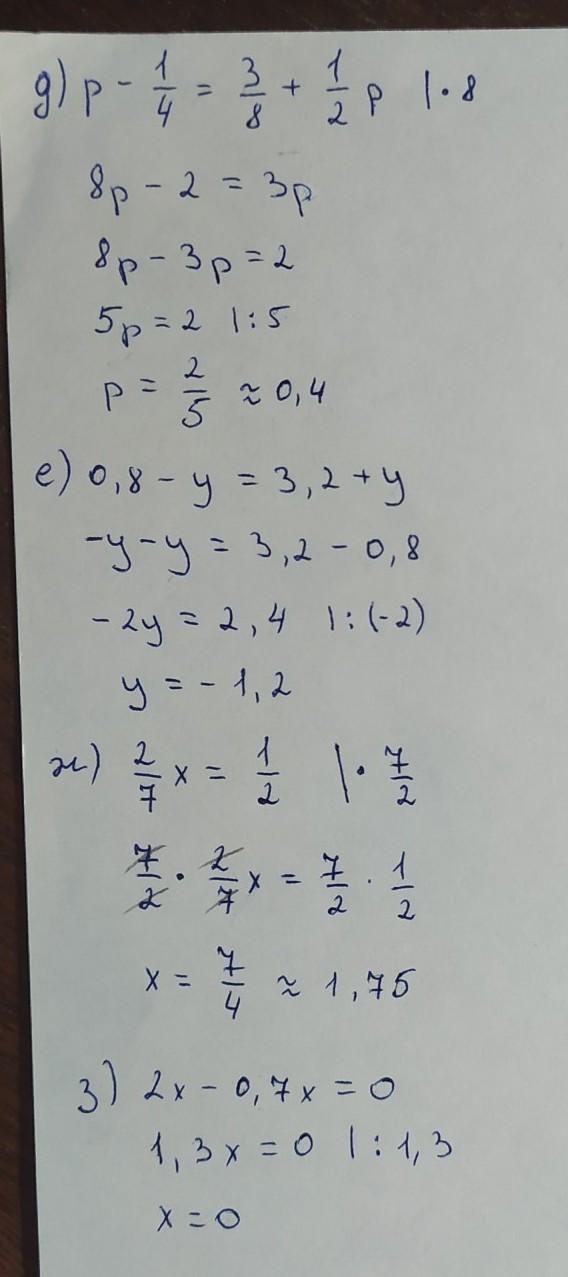 д) p - 1/4 = 3/8 + 1/2 p | · 8
8p - 2 = 3p
8p - 3p = 2
5p = 2 | : 5
p = 2/5 ≈ 0,4
е) 0,8 - y = 3,2 + y
-y - y = 3,2 - 0,8
-2y = 2,4 | : (-2)
y = - 1,2
ж) 2/7 x = 1/2 | · 7/2
7/2 · 2/7 x = 7/2 · 1/2
x = 7/4 ≈ 1,75
з) 2x - 0,7x = 0
1,3x = 0 | : 1,3
x = 0